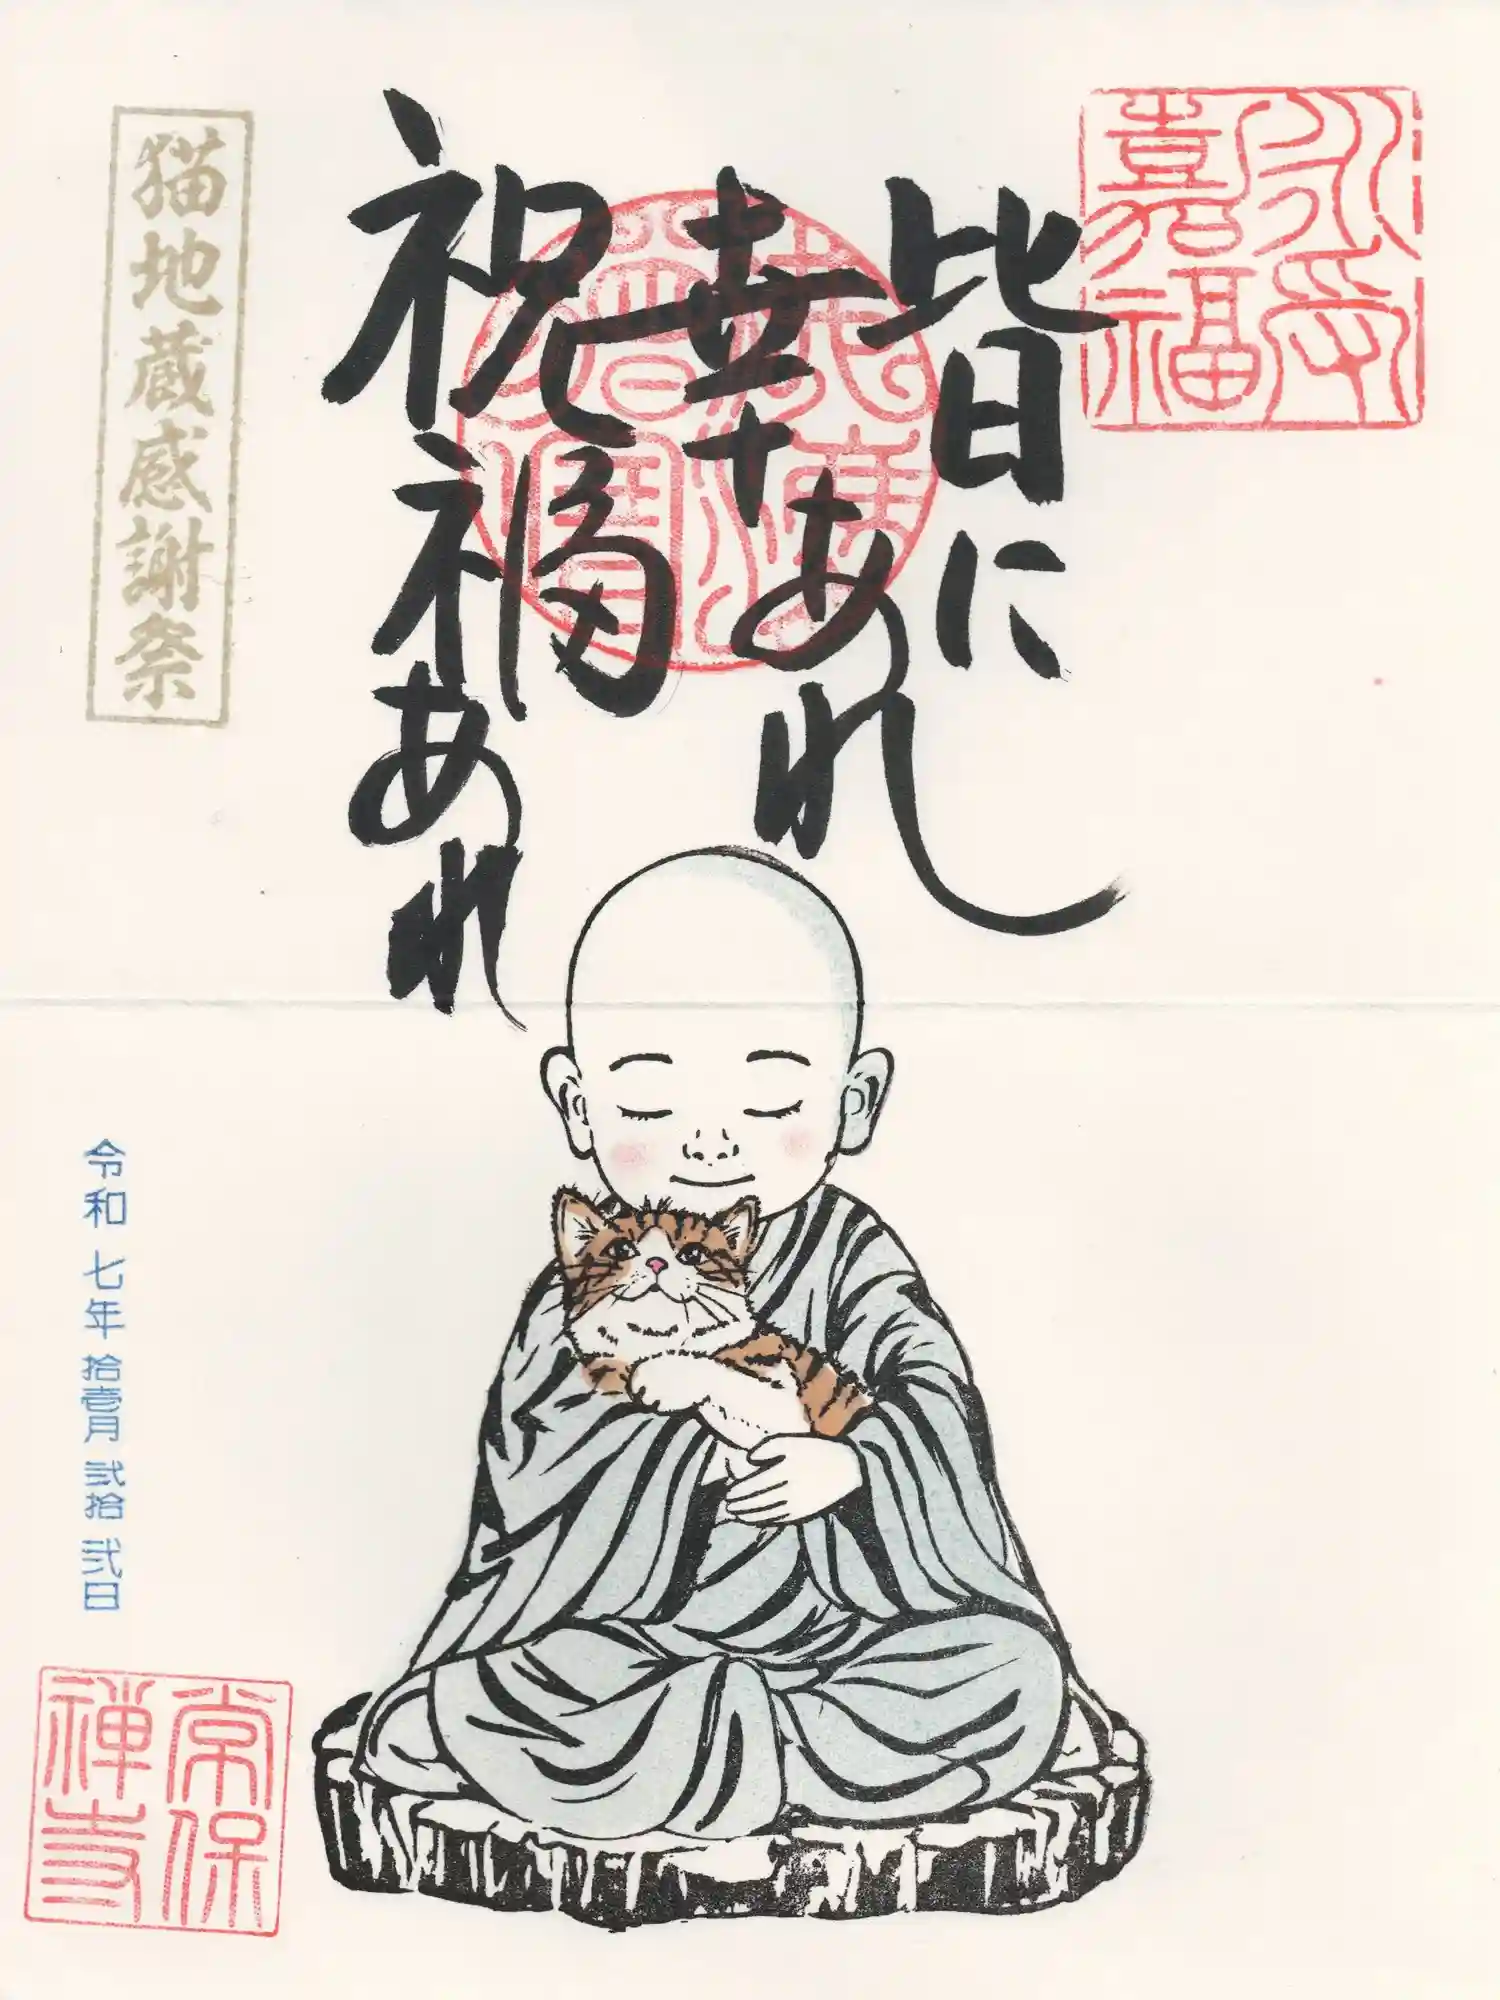 永受
嘉福
皆に
幸あれ
祝福あれ
猫地蔵感謝祭
令和七年拾壱月弐拾弐日
常保
禅寺